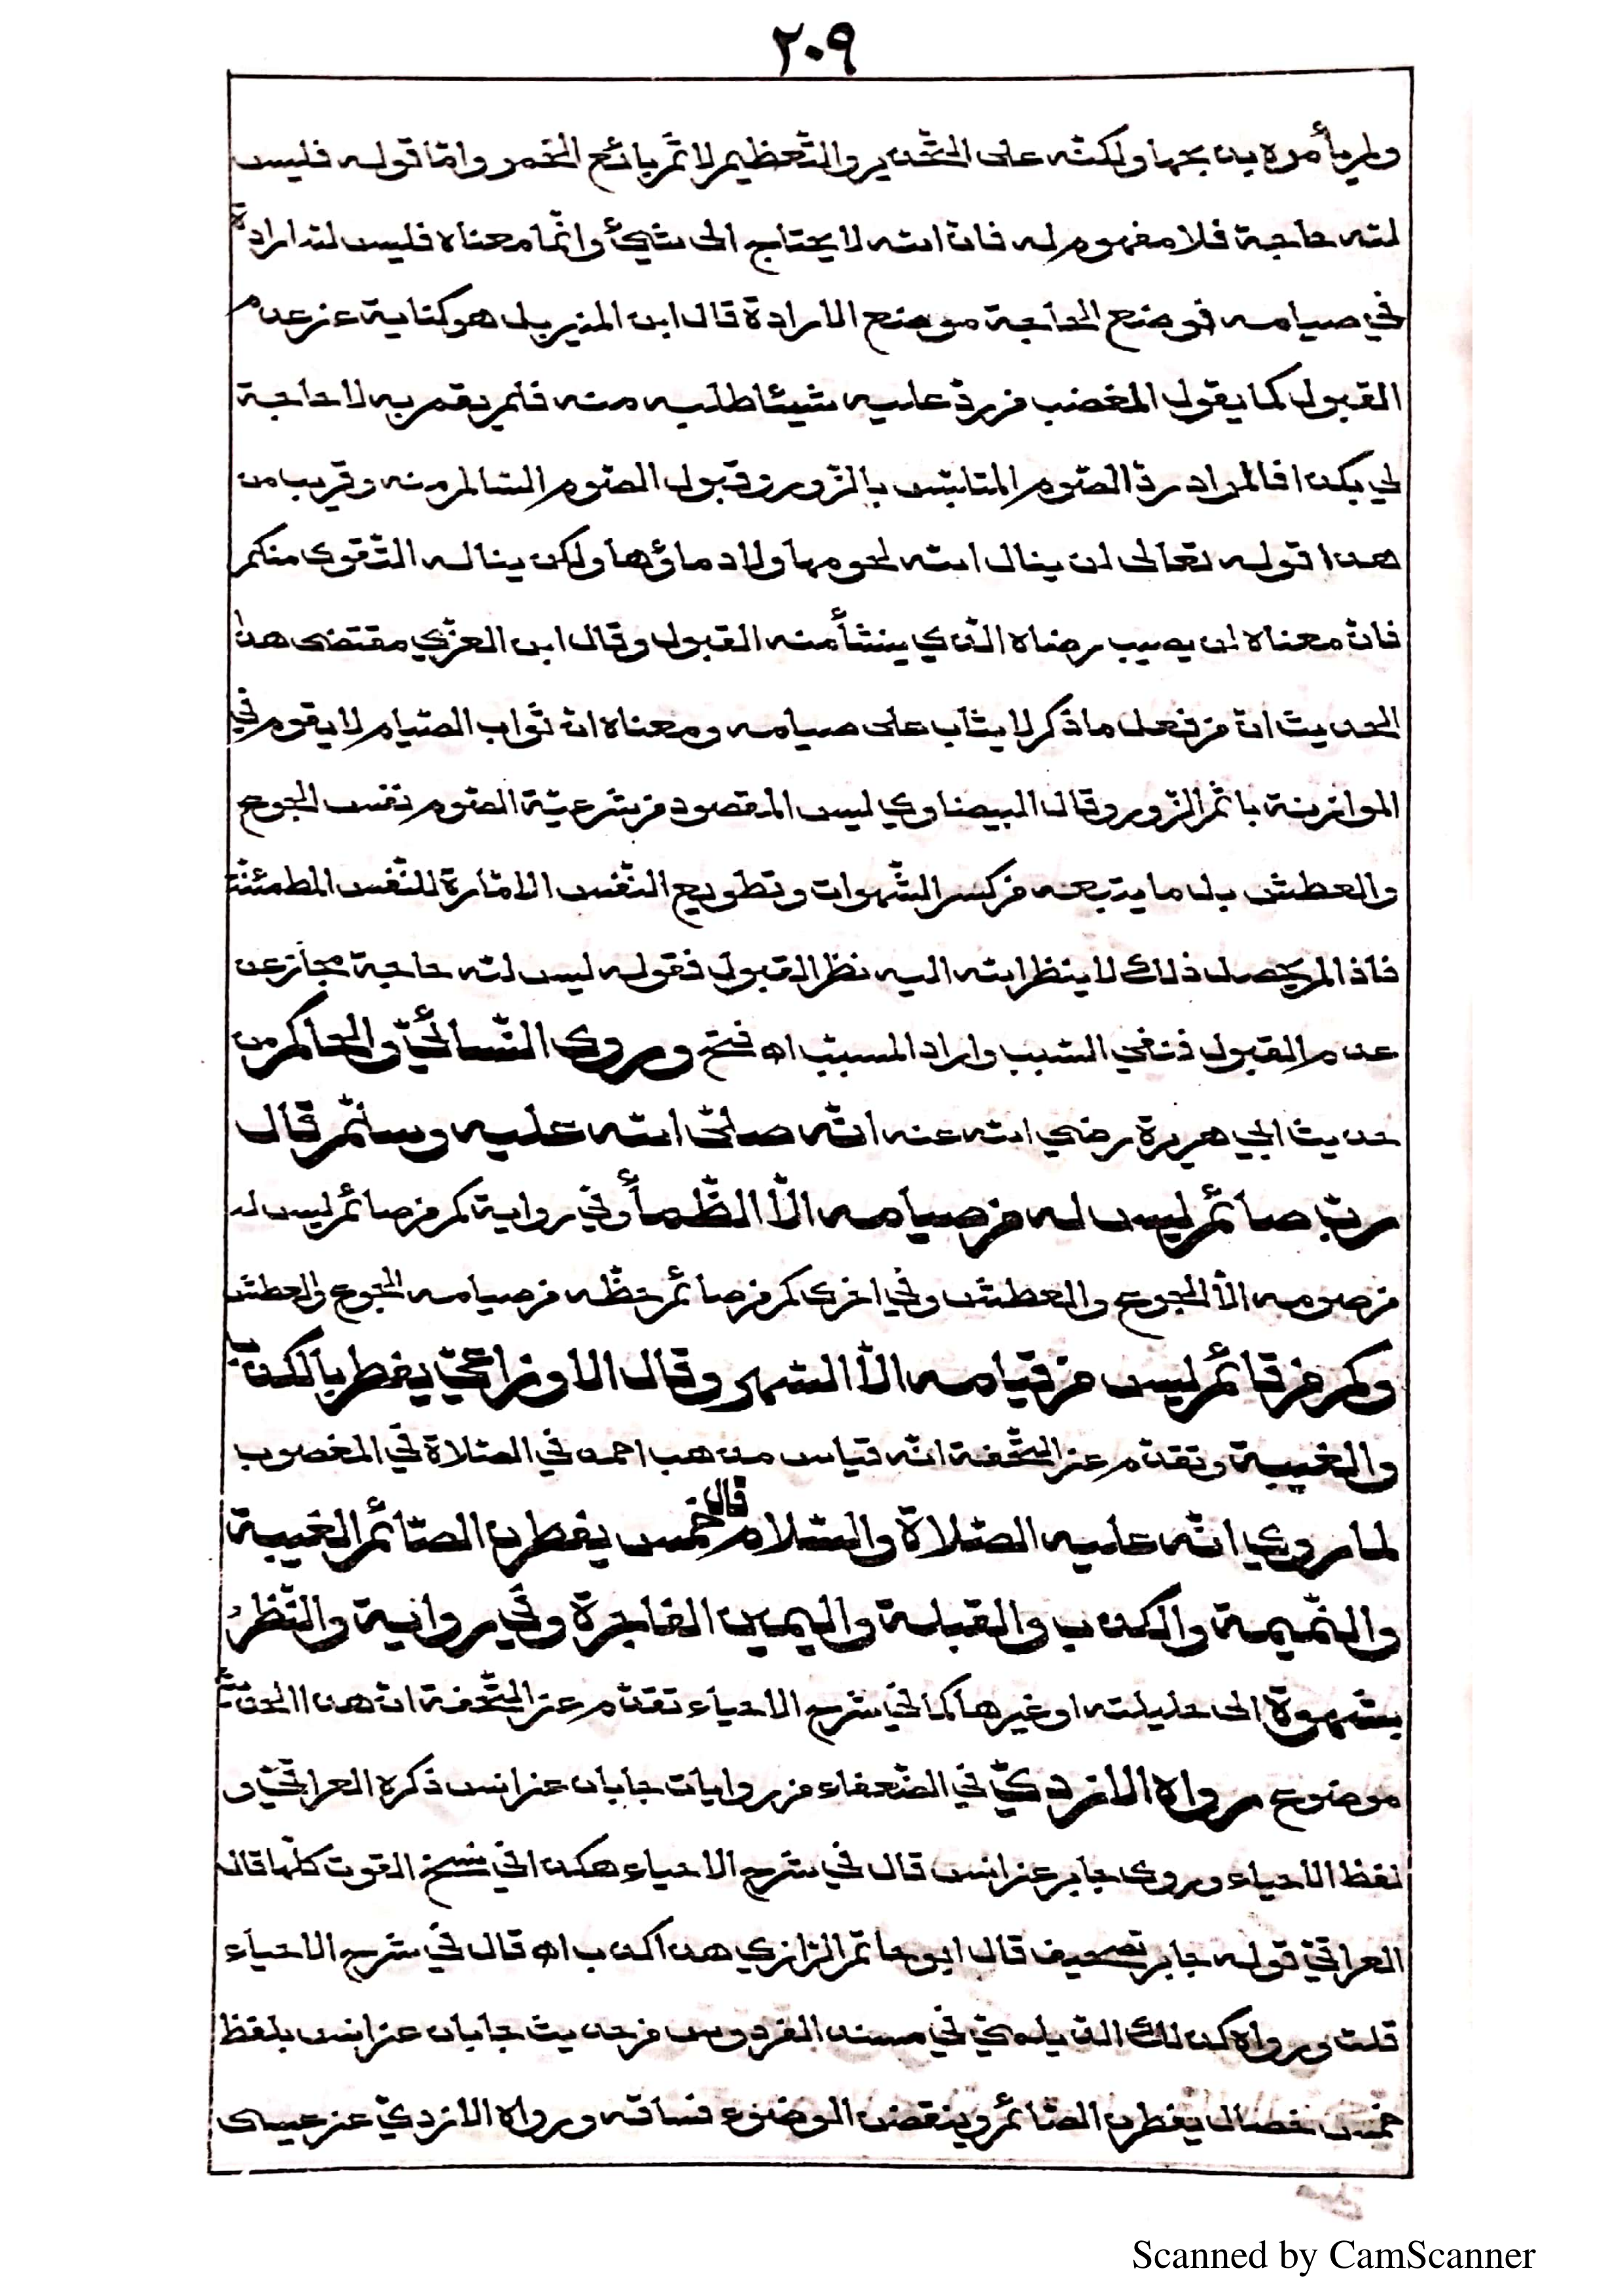 ٢٠٩
ولم يأمره بذبحها ولكنّه على التّحذير والتّعظيم لاثم بائع الخمر وامّا قوله فليس
لله حاجة فلا مفهوم له فانّ الله لا يحتاج الى شيئ وانّما معناه فليس لله ارادة
في صيامه فوضع الحاجة موضع الارادة قال ابن المنير بل هو كناية عن عدم
القبول كما يقول المغضب من ردّ عليه شيئا طلبه منه فلم يقم به لا حاجة
لي بكذا فالمراد ردّ الصّوم المتلبّس بالزّور وقبول الصّوم السّالم منه وقريب من
هذا قوله تعالى لن ينال الله لحومها ولا دماؤها ولكن يناله التّقوى منكم
فانّ معناه لن يصيب رضاه الّذي ينشأ منه القبول وقال ابن العربّي مقتضى هذا
الحديث انّ من فعل ما ذكر لا يثاب على صيامه ومعناه انّ ثواب الصّيام لا يقوم في
الموازنة باثم الزّور وقال البيضاوي ليس المقصود من شرعيّة الصّوم نفس الجوع
والعطش بل ما يتبعه من كسر الشّهوات وتطويع النّفس الامّارة للنّفس المطمئنّة
فاذا لم يحصل ذلك لا ينظر الله اليه نظر القبول فقوله ليس لله حاجة مجاز عن
عدم القبول فنفي السّبب واراد المسبّب اه فتح وروى النّسائيّ والحاكم من
حديث ابي هريرة رضي الله عنه انّه صلّى الله عليه وسلّم قال
ربّ صائم ليس له من صيامه الّا الظّمأ وفي رواية كم من صائم ليس له
من صومه الّا الجوع والعطش وفي اخرى كم من صائم حظّه من صيامه الجوع والعطش
وكم من قائم ليس من قيامه الّا السّهر وقال الاوزاعيّ يفطر بالكذب
والغيبة وتقدّم عن التّحفة انّه قياس مذهب احمد في الصّلاة في المغصوب
لما روي انّه عليه الصّلاة والسّلام قال خمس يفطرن الصّائم الغيبة
والنّميمة والكذب والقبلة واليمين الفاجرة وفي رواية والنّظر
بشهوة الى حليلته او غيرها كما في شرح الاحياء تقدّم عن التّحفة انّ هذا الحديث
موضوع رواه الازديّ في الضّعفاء من روايات جابان عن انس ذكره العراقيّ و
لفظ الاحياء وروى جابر عن انس قال في شرح الاحياء هكذا في نسخ القوت كلّها قال
العراقيّ قوله جابر تصحيف قال ابو حاتم الرّازي هذا كذب اه قال في شرح الاحياء
قلت ورواه كذلك الدّيلميّ في مسند الفردوس من حديث جابان عن انس بلفظ
خمس خصال يفطرن الصّائم وينقضن الوضوء فساقه ورواه الازديّ عن عيسى
Scanned by CamScanner